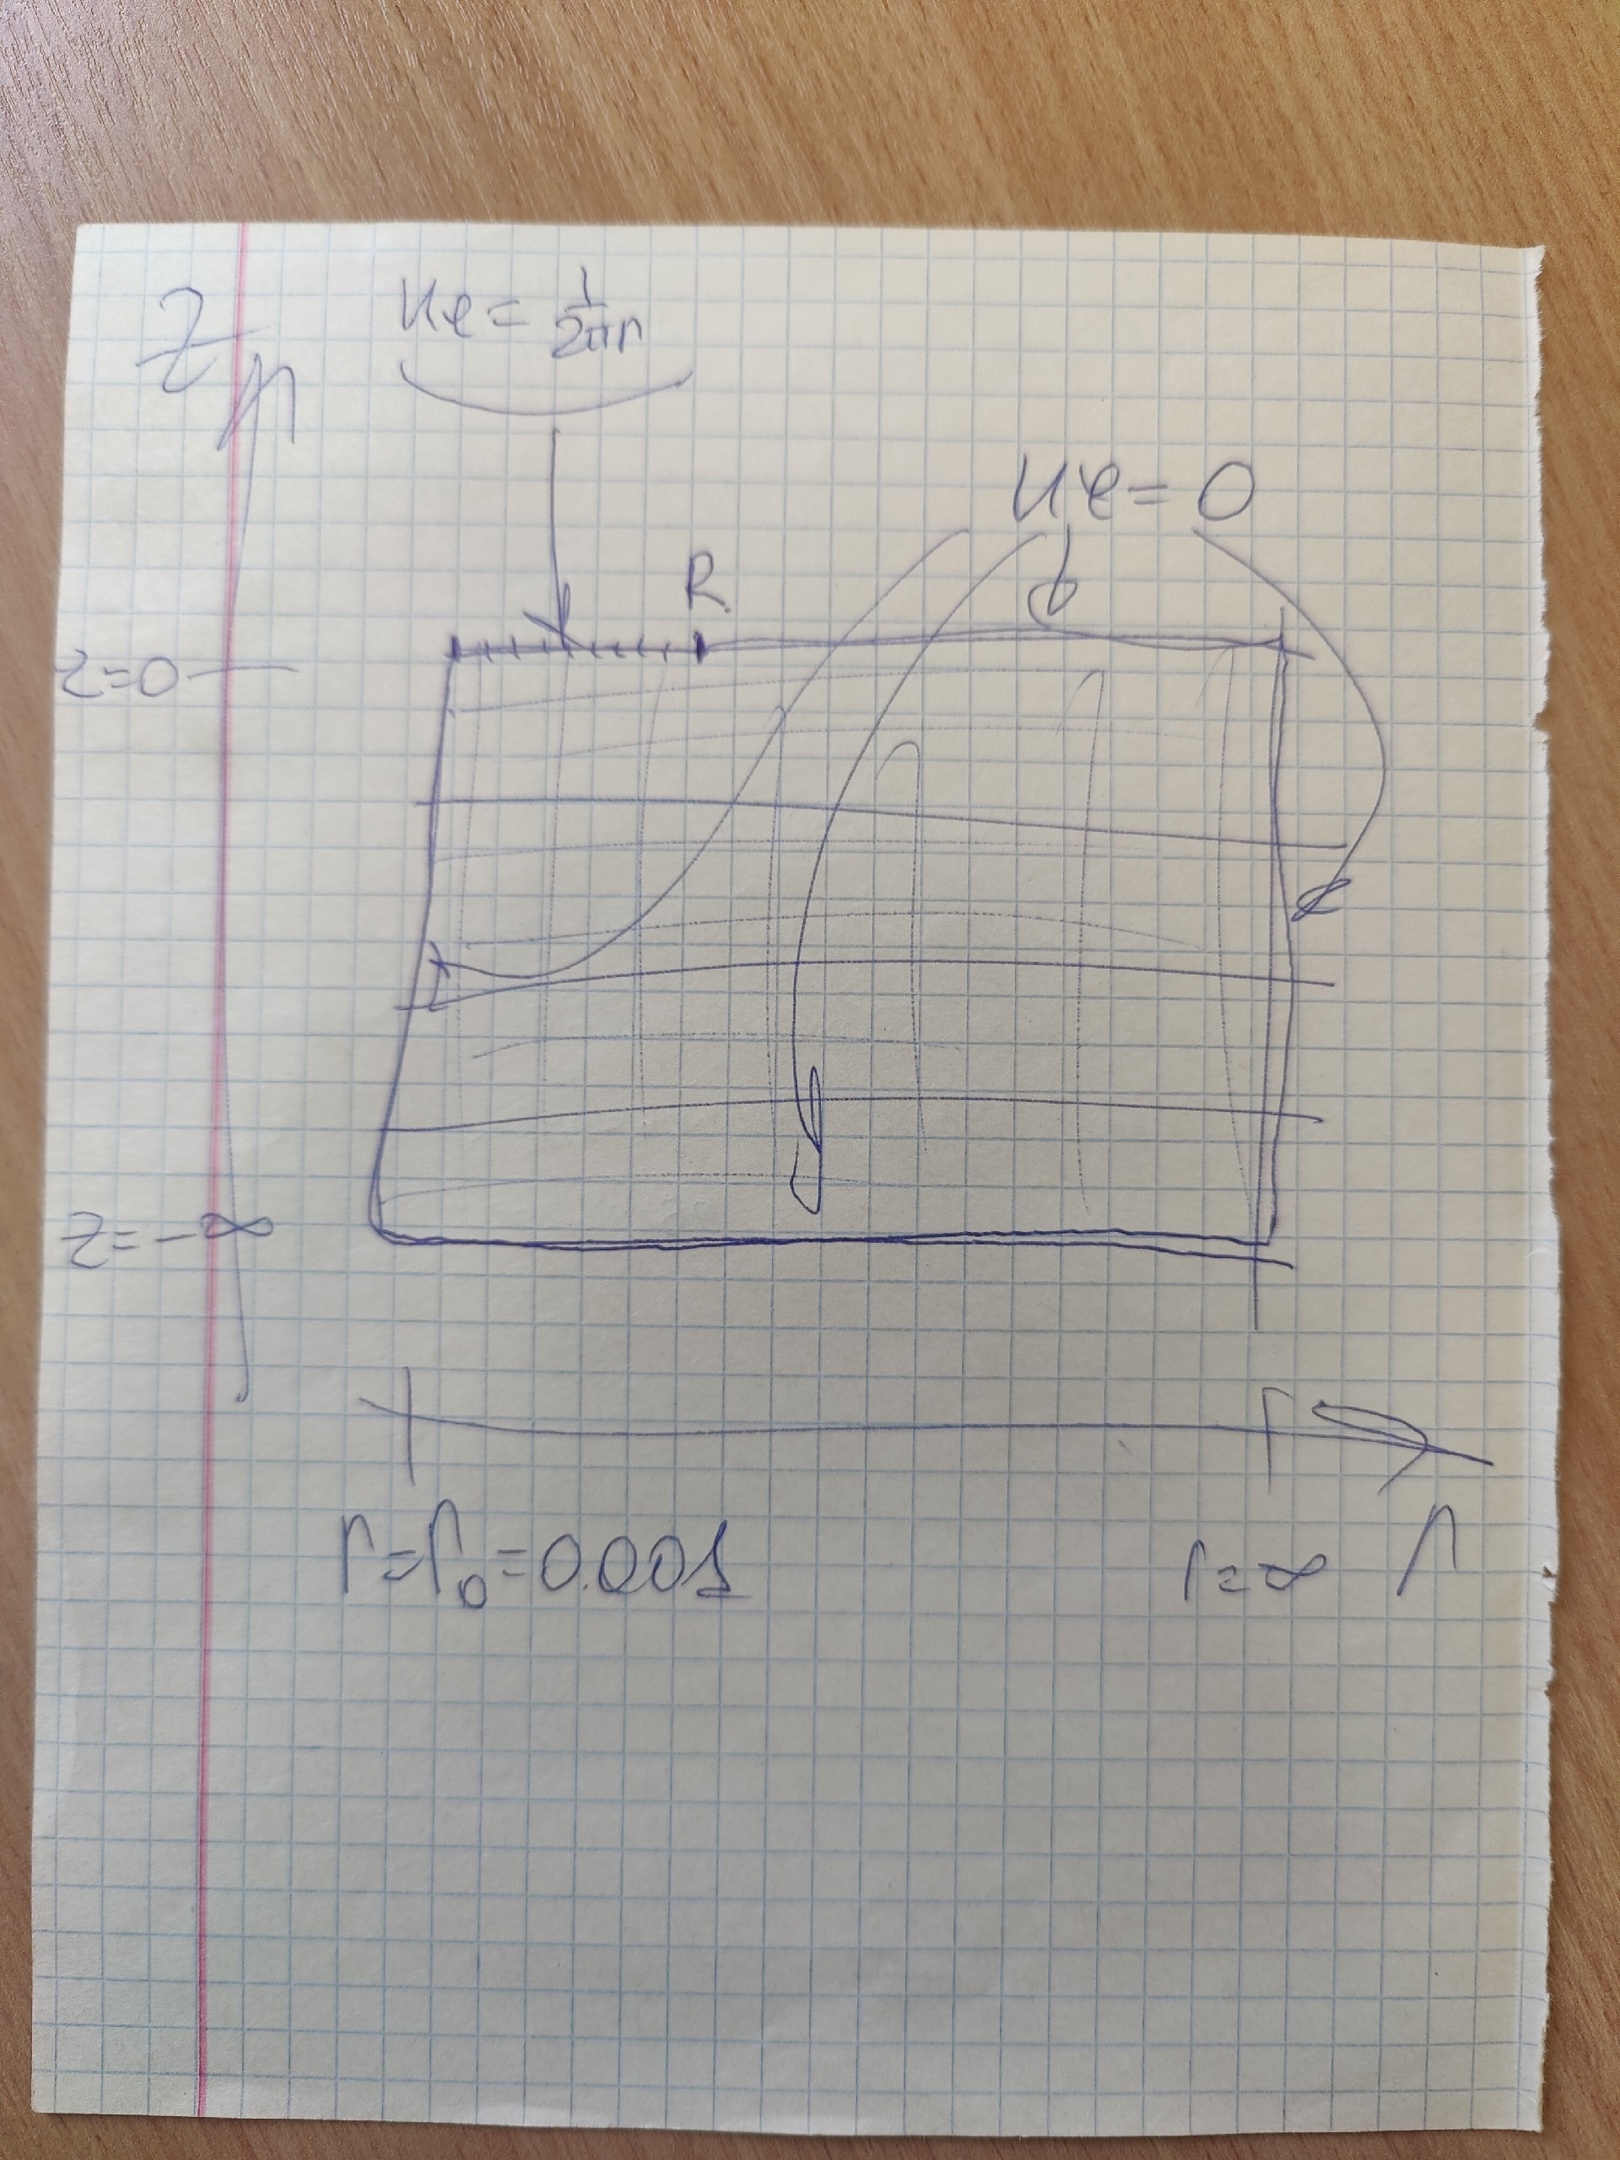 z
Hφ = 1/2πr
Hφ = 0
R
z=0
z=-∞
r=r₀=0.001
r=∞
r